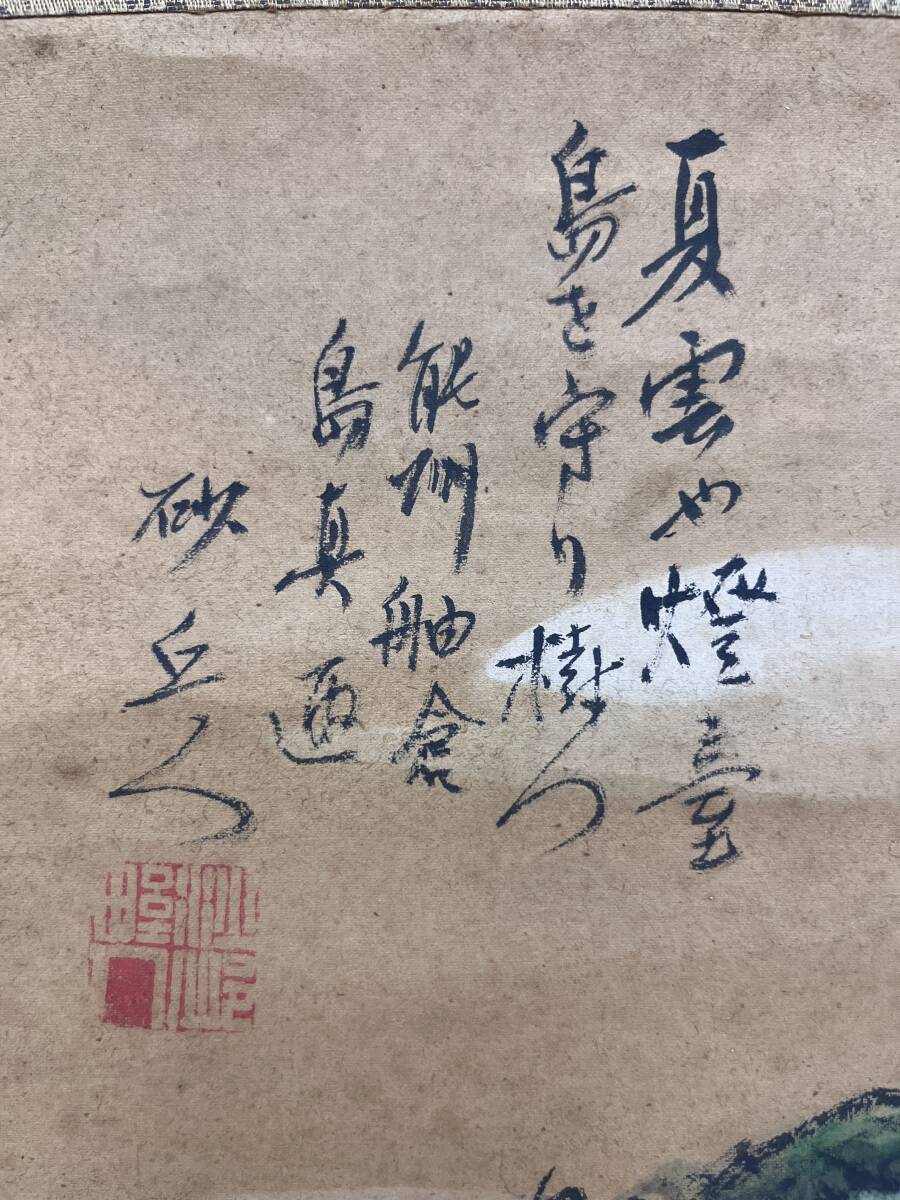 夏雲や燈臺
島を守り樹つ
能州舳倉
島真
砂丘人